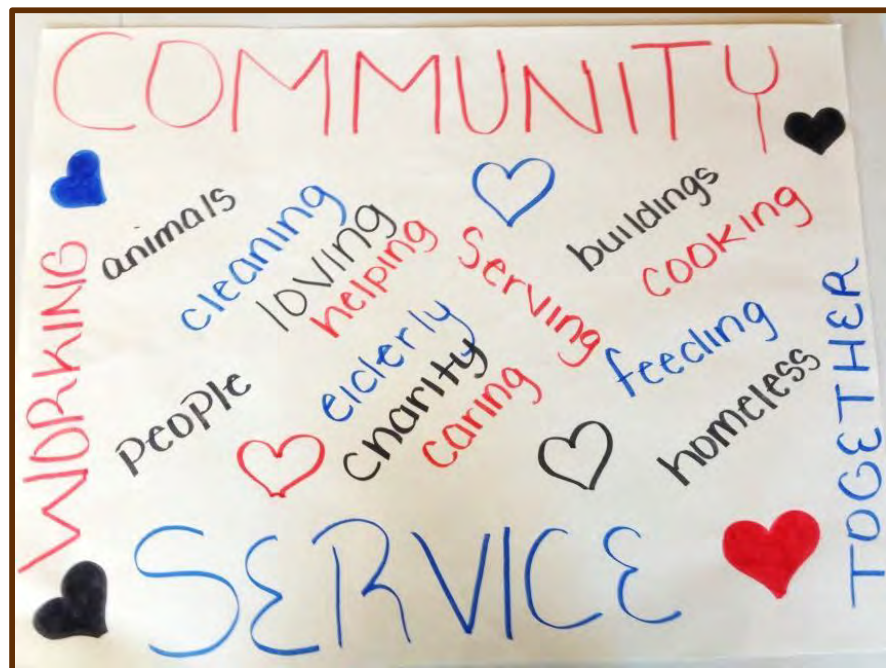 COMMUNITY
WORKING
animals
cleaning
loving
helping
serving
buildings
cooking
people
elderly
charity
caring
feeding
homeless
TOGETHER
SERVICE